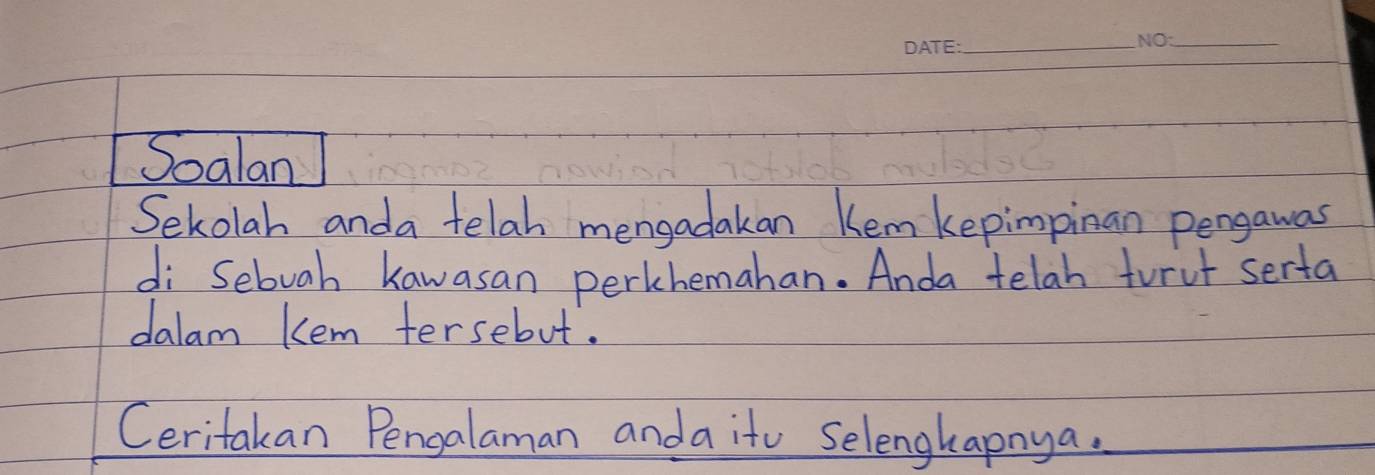 DATE: NO:
Soalan
Sekolah anda telah mengadakan Kem kepimpinan pengawas
di sebuah kawasan perkhemahan. Anda telah turut serta
dalam kem tersebut.
Ceritakan Pengalaman anda itu selengkapnya.